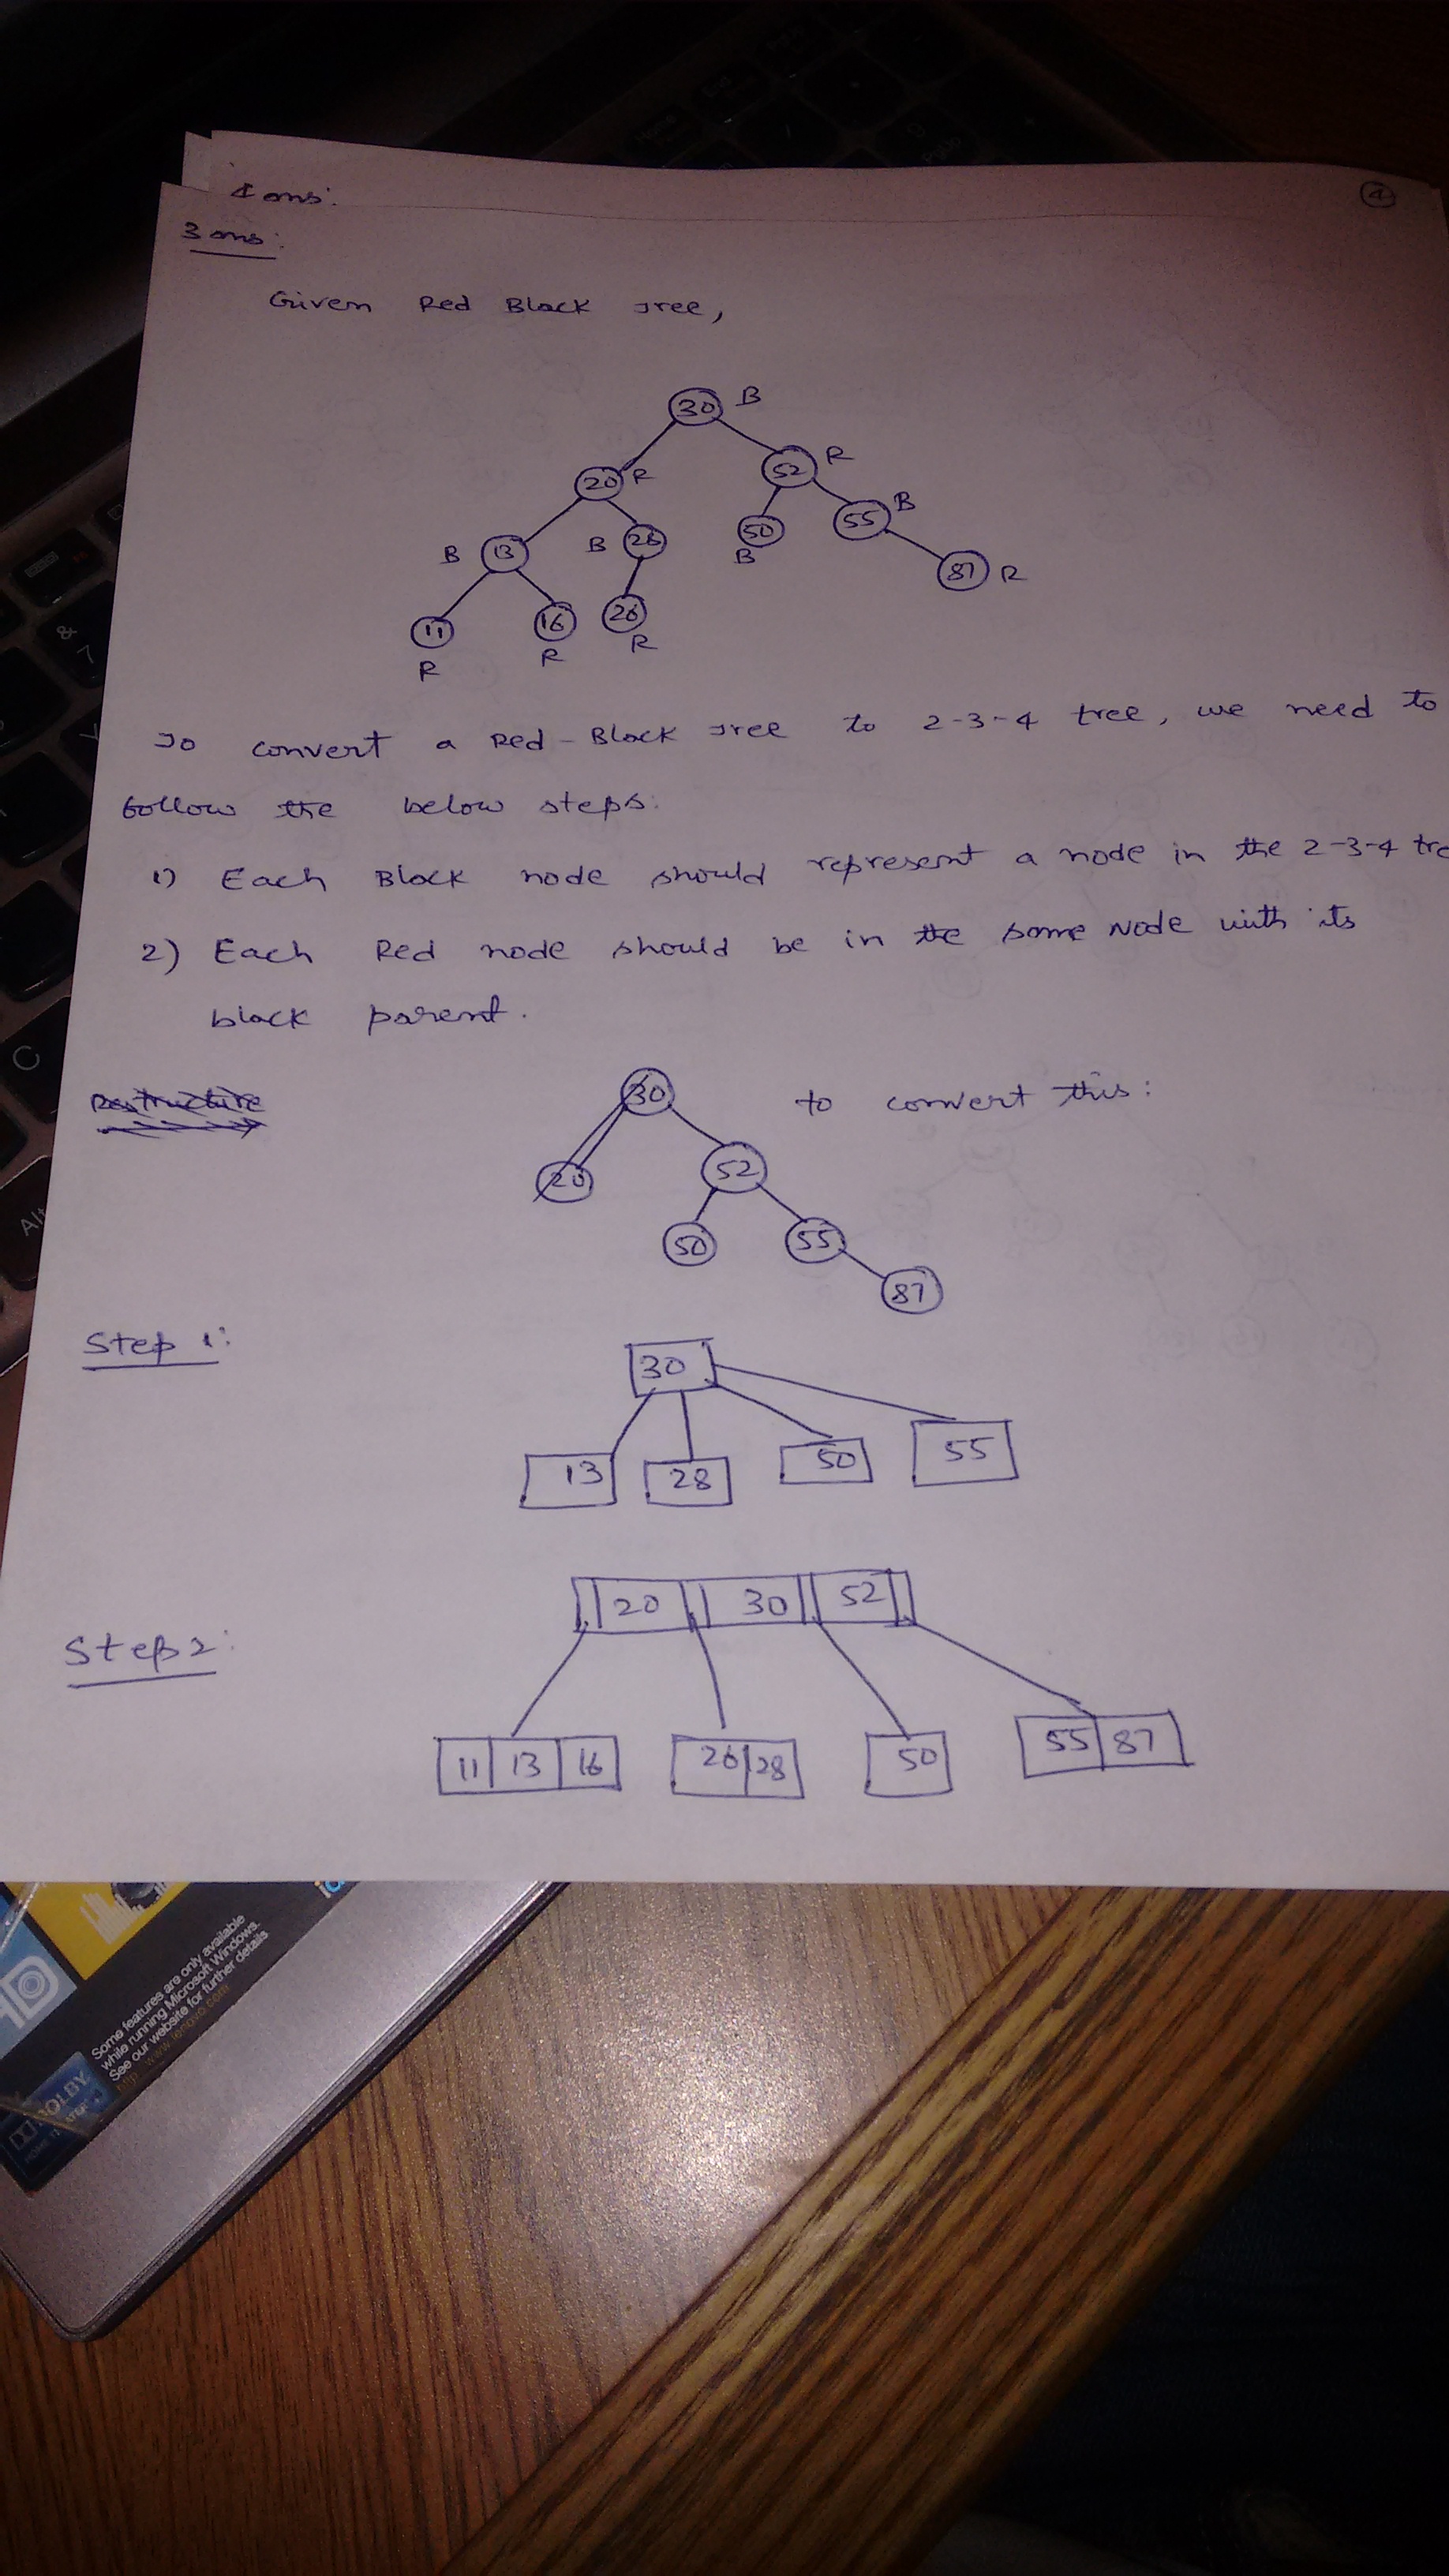 4 ans:
4
3 ans:
Given Red Black Tree,
30 B
20 R 52 R
B 13 B 26 50 B 55 B
11 R 16 R 26 R 87 R
To convert a Red-Black Tree to 2-3-4 tree, we need to
follow the below steps:
1) Each Black node should represent a node in the 2-3-4 tre
2) Each Red node should be in the same Node with its
black parent.
Restructure
30 to convert this:
20 52
50 55
87
Step 1:
30
13 28 50 55
Step 2:
20 30 52
11 13 16 26 28 50 55 87
Some features are only available
while running Microsoft Windows.
See our website for further details
http://www.lenovo.com
DOLBY
HD
Home
End
PgUp
&
7
C
Alt